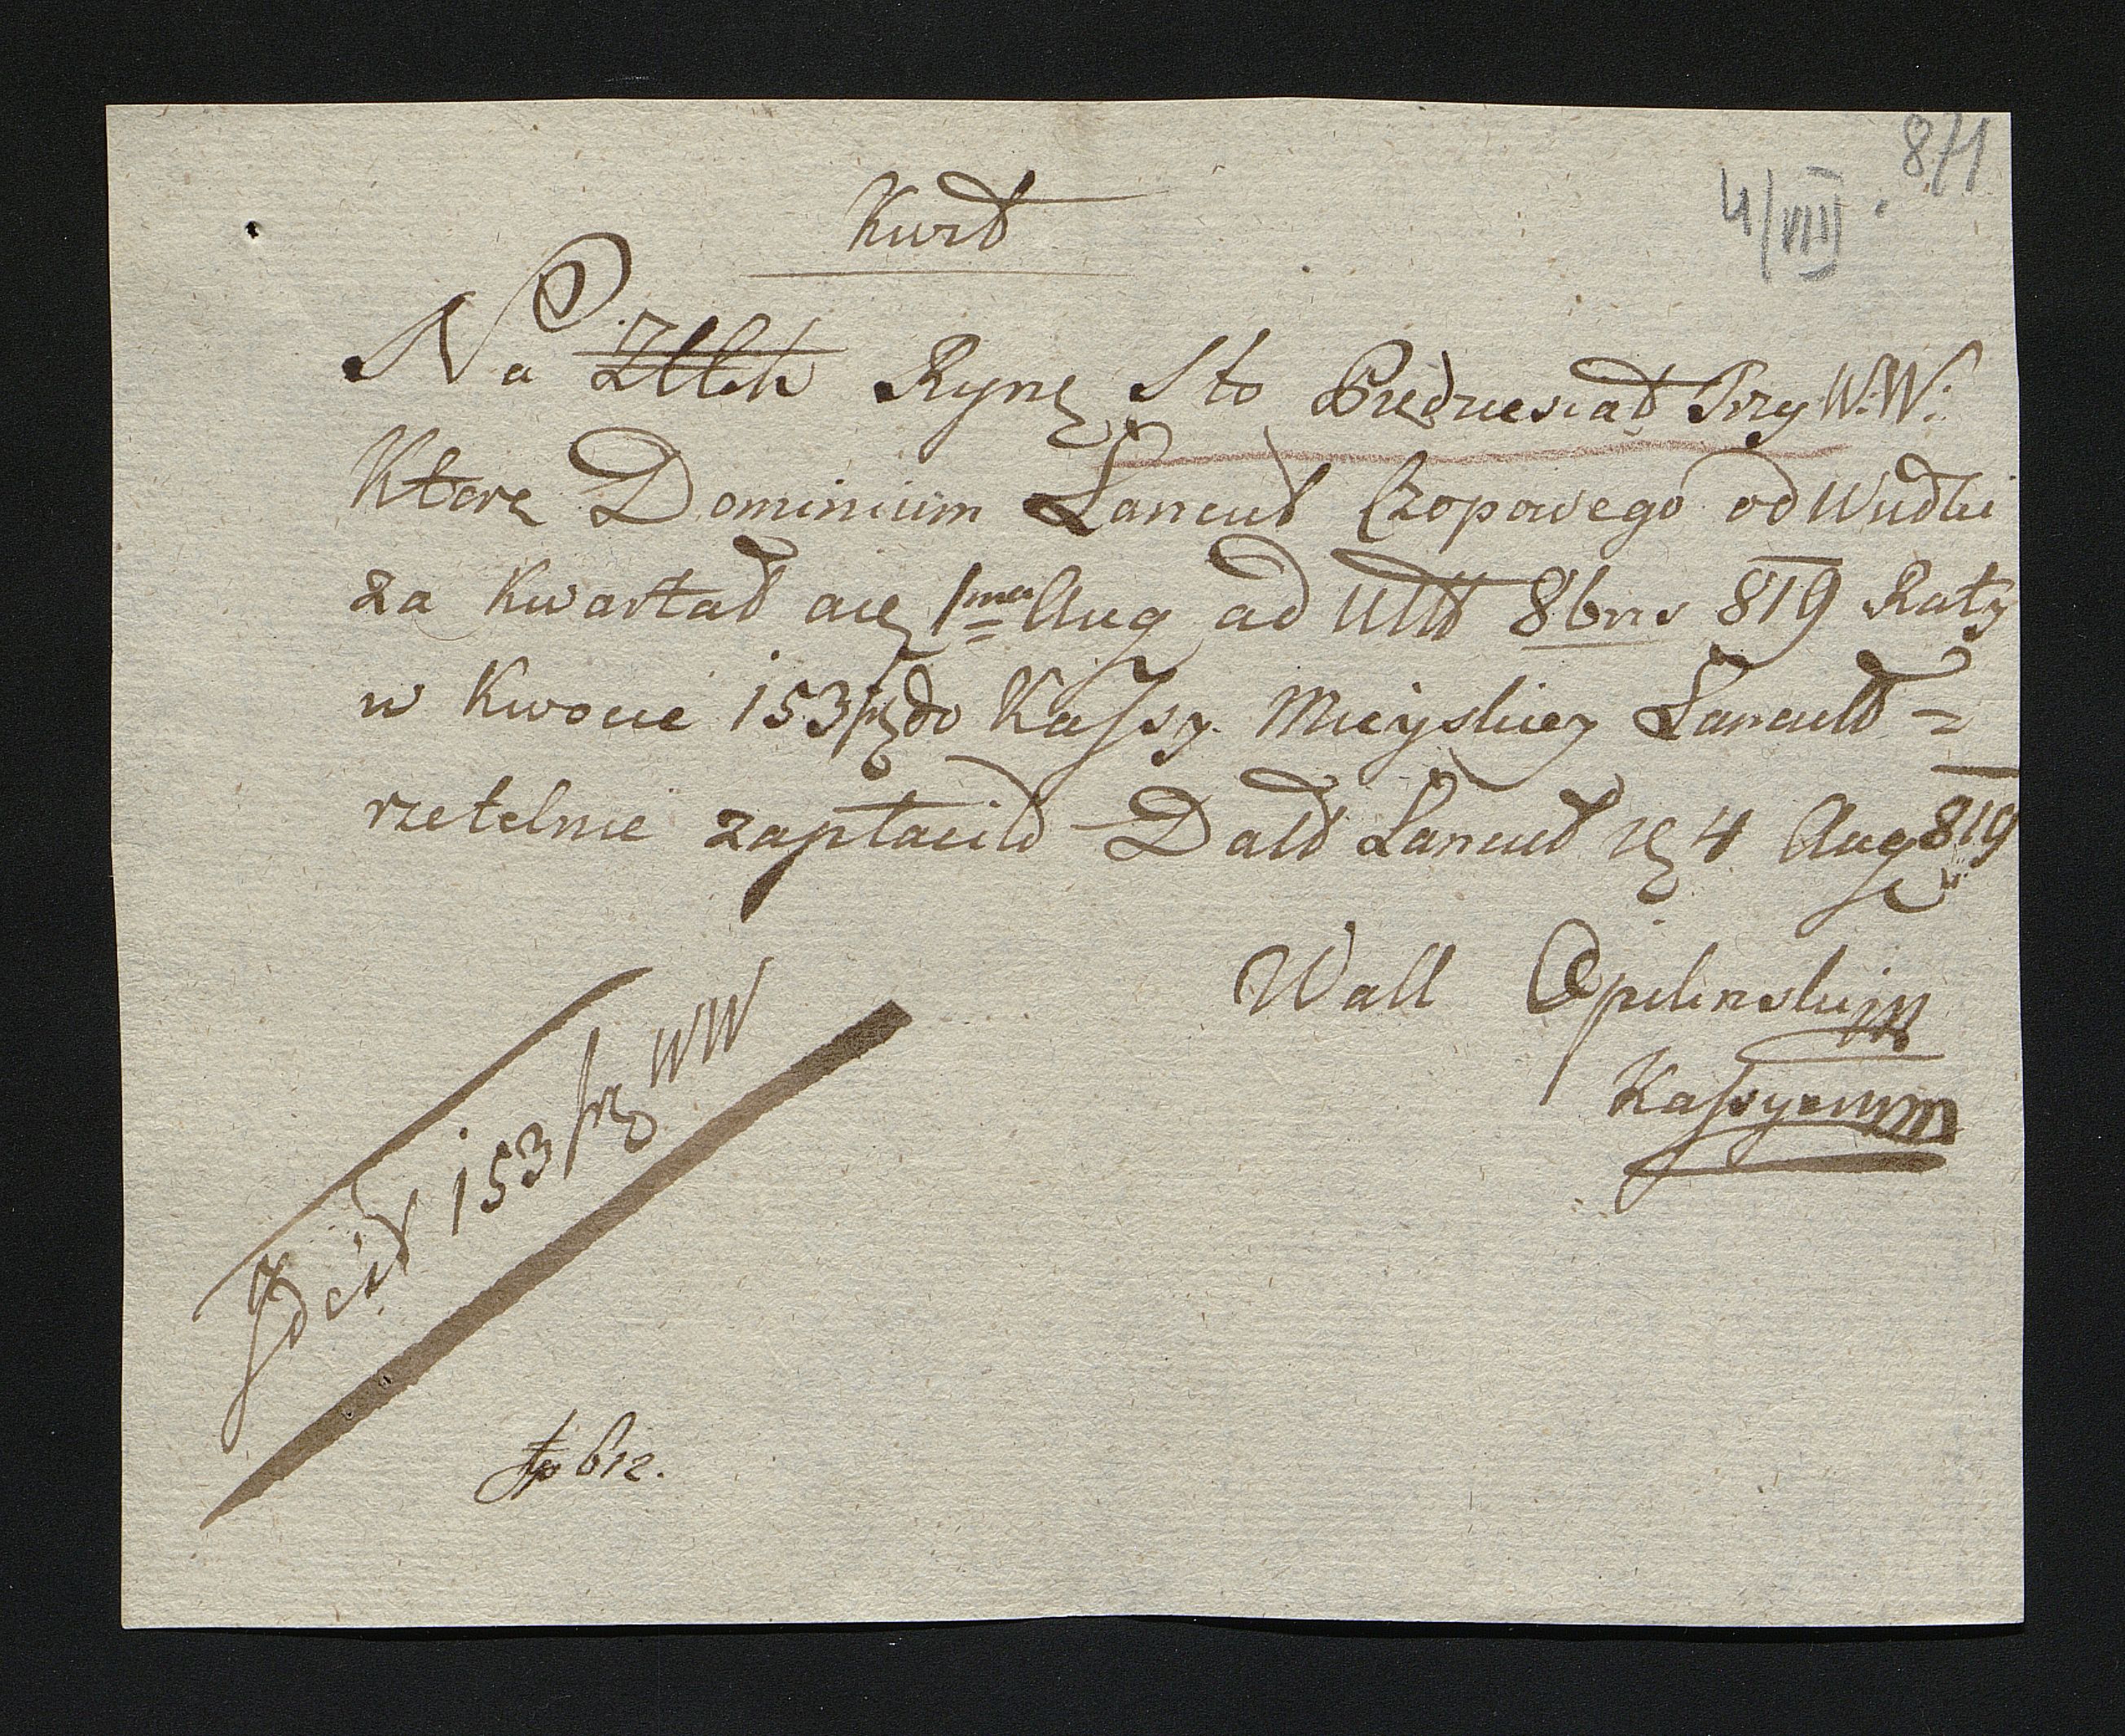 871
4/VIII.
Kwit
Na Ryns Sto Piędziesiąt Trzy W:W:
Które Dominium Łancut Czopowego od Wudki
za Kwartał a 1ma Aug ad Ult 8bris 819 Raty
w Kwocie 153 fr do Kassy Mieyskiey Łancutt =
rzetelnie zapłacił Datt Łancut d 4 Aug 819
Wall Opilinski
Kassyer
Id est 153 fr WW